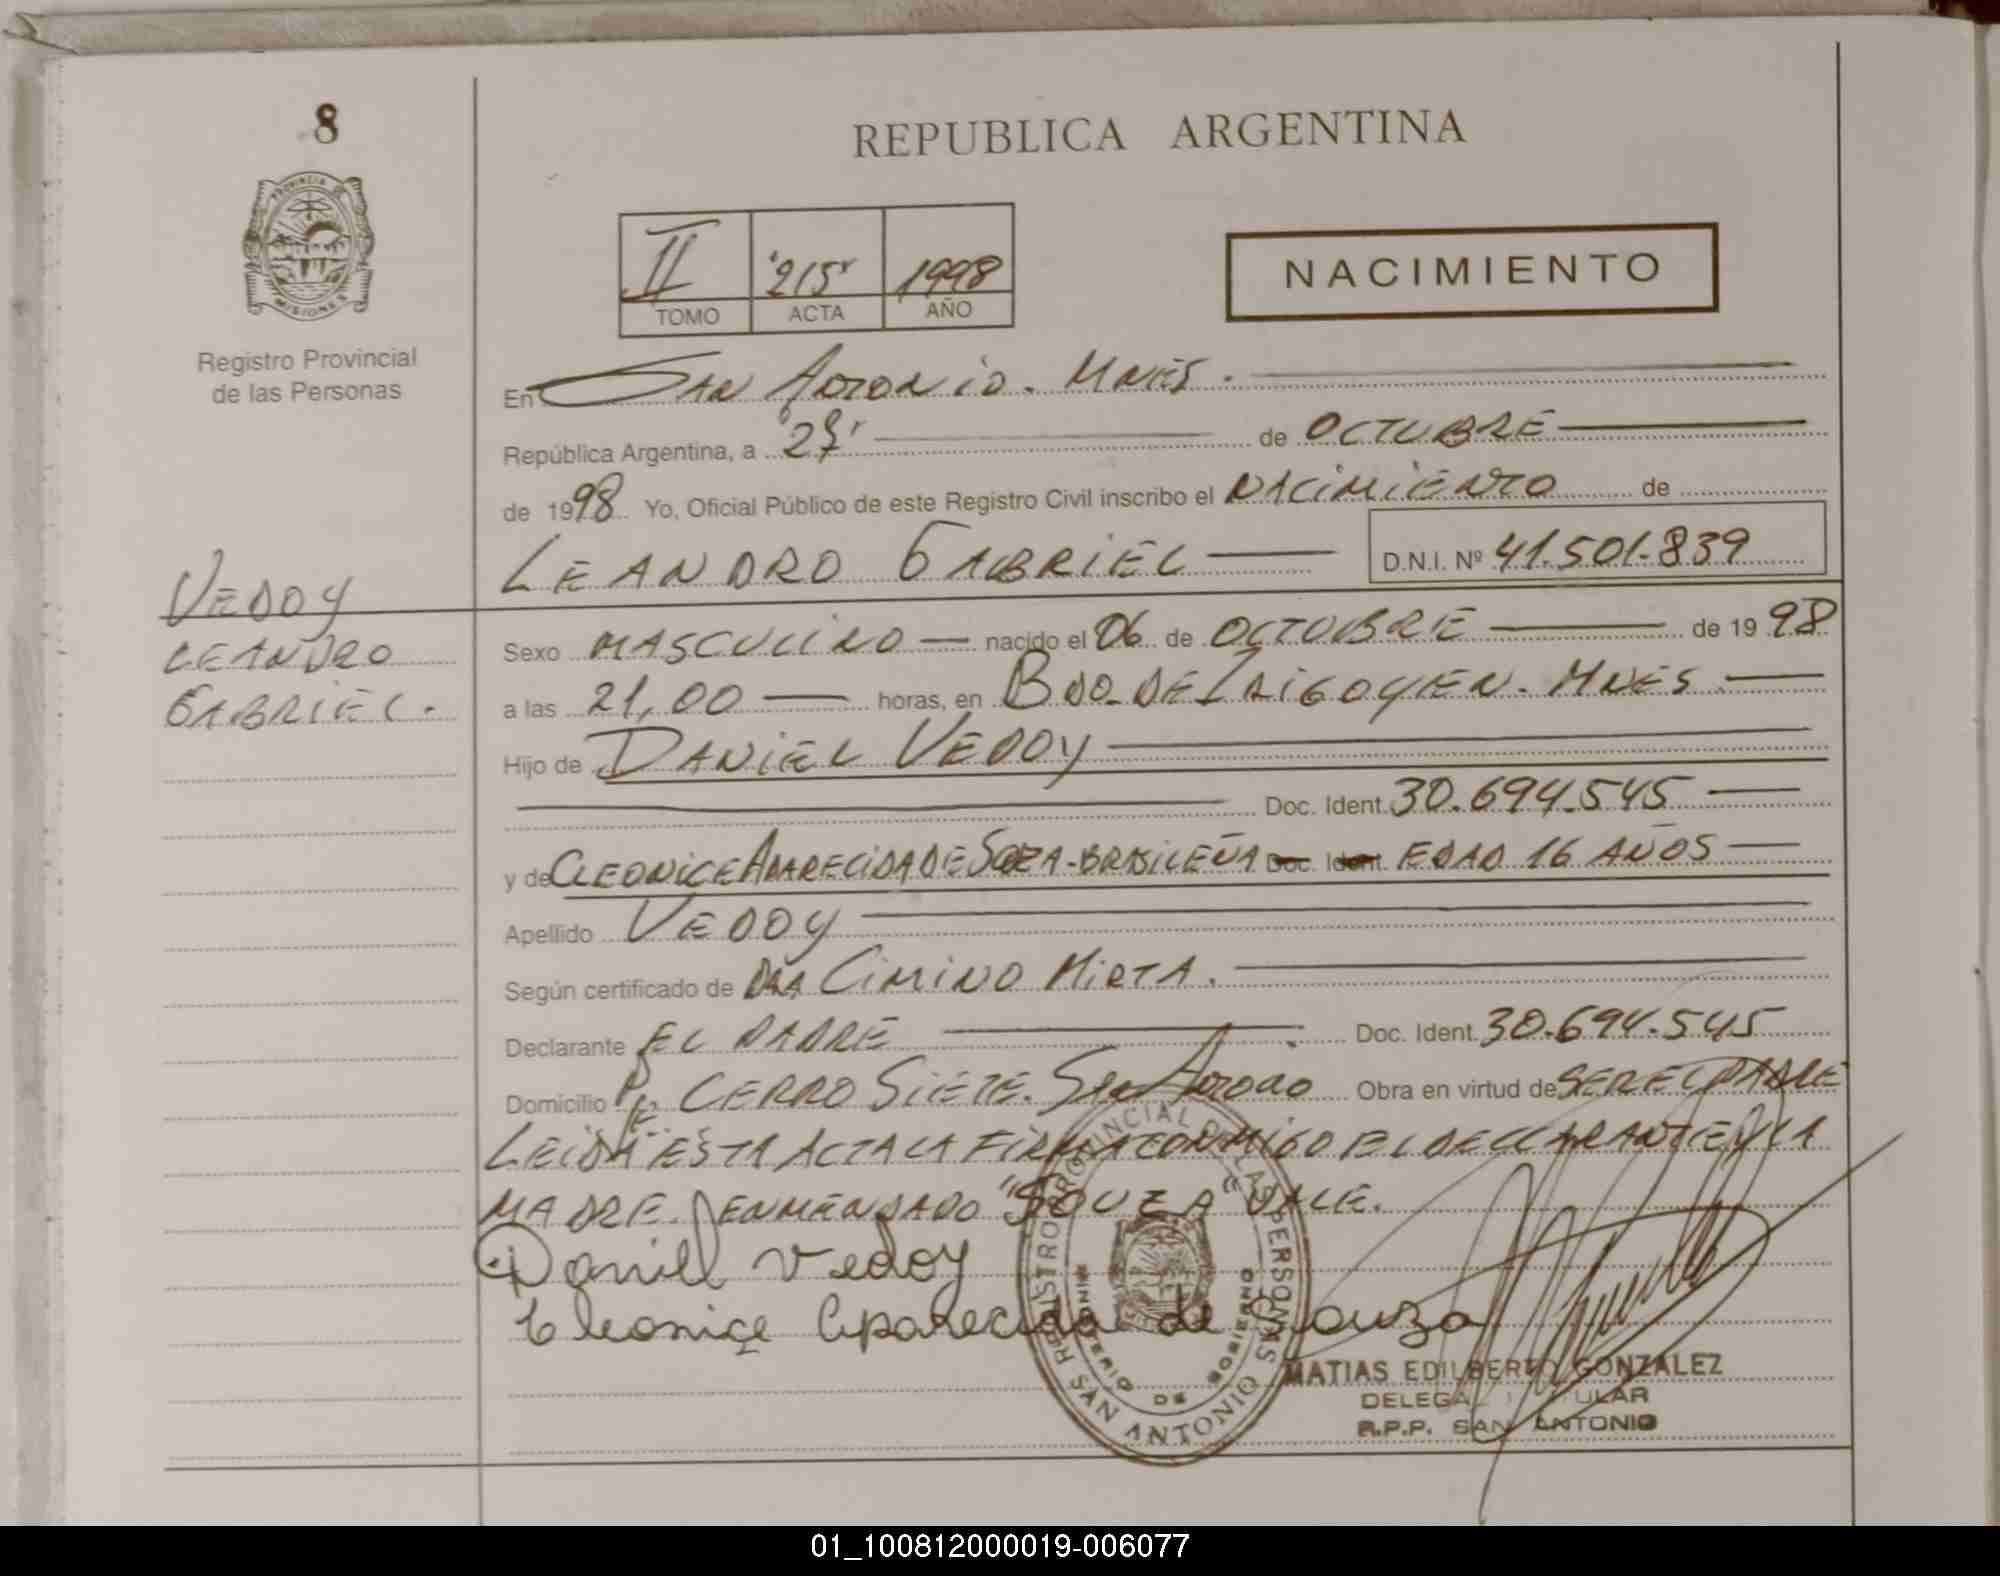 8
PROVINCIA DE
MISIONES
Registro Provincial
de las Personas
REPUBLICA ARGENTINA
II '215' 1998
TOMO ACTA AÑO
NACIMIENTO
En SAN ANTONIO. MNES.
República Argentina, a de OCTUBRE
de 1998 Yo, Oficial Público de este Registro Civil inscribo el NACIMIENTO de
LEANDRO GABRIEL D.N.I. Nº 41.501.839
VEDOY
LEANDRO
GABRIEL.
Sexo MASCULINO nacido el 06 de OCTUBRE de 1998
a las 21,00 horas, en BDO. DE IRIGOYEN. MNES.
Hijo de DANIEL VEDOY
Doc. Ident. 30.694.545
y de CLEONICE APARECIDA DE SOUZA - BRASILEÑA Doc. Ident. EDAD 16 AÑOS
Apellido VEDOY
Según certificado de DRA CIMINO MIRTA.
Declarante EL PADRE Doc. Ident. 30.694.545
Domicilio CERRO SIETE. SAN ANTONIO Obra en virtud de SER EL PADRE
LEIDA ESTA ACTA LA FIRMA CONMIGO EL DECLARANTE Y LA
MADRE. ENMENDADO "SOUZA" VALE.
Daniel Vedoy
Cleonice Aparecida de Souza
REGISTRO PROVINCIAL DE LAS PERSONAS
MINISTERIO DE GOBIERNO
SAN ANTONIO
MATIAS EDILBERTO GONZALEZ
DELEGADO TITULAR
R.P.P. SAN ANTONIO
01_100812000019-006077